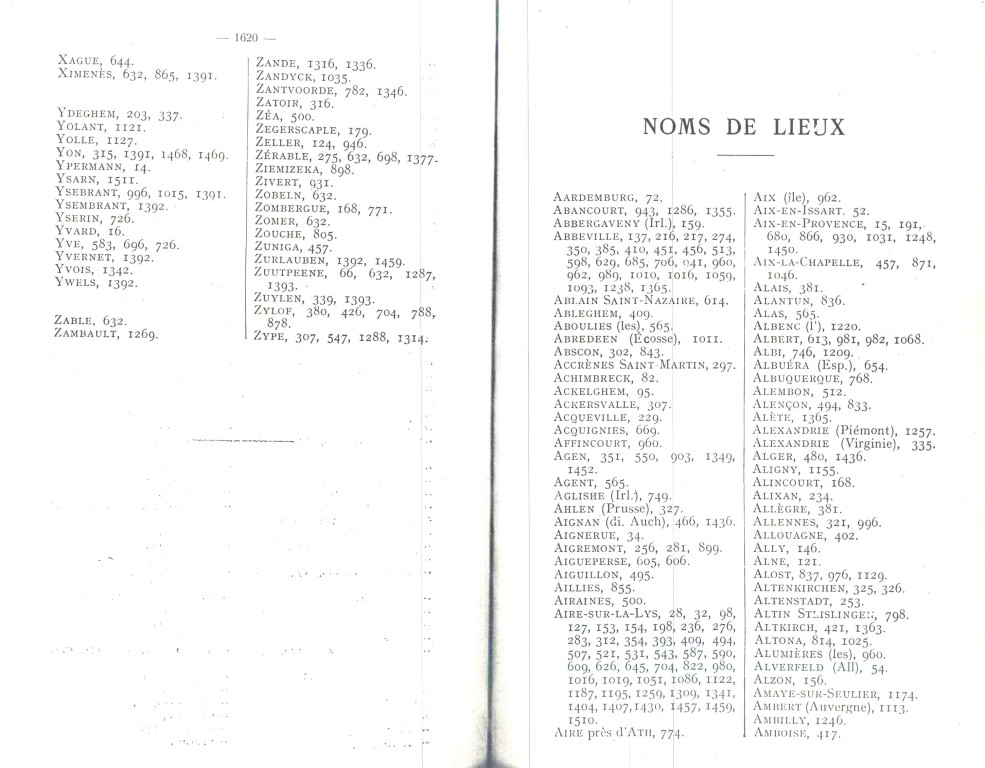 — 1620 —
XAGUE, 644.
XIMENÈS, 632, 865, 1391.
YDEGHEM, 203, 337.
YOLANT, 1121.
YOLLE, 1127.
YON, 315, 1391, 1468, 1469.
YPERMANN, 14.
YSARN, 1511.
YSEBRANT, 996, 1015, 1391.
YSEMBRANT, 1392.
YSERIN, 726.
YVARD, 16.
YVE, 583, 696, 726.
YVERNET, 1392.
YVOIS, 1342.
YWELS, 1392.
ZABLE, 632.
ZAMBAULT, 1269.
ZANDE, 1316, 1336.
ZANDYCK, 1035.
ZANTVOORDE, 782, 1346.
ZATOIR, 316.
ZÉA, 500.
ZEGERSCAPLE, 179.
ZELLER, 124, 946.
ZÉRABLE, 275, 632, 698, 1377.
ZIEMIZEKA, 898.
ZIVERT, 931.
ZOBELN, 632.
ZOMBERGUE, 168, 771.
ZOMER, 632.
ZOUCHE, 805.
ZUNIGA, 457.
ZURLAUBEN, 1392, 1459.
ZUUTPEENE, 66, 632, 1287,
1393.
ZUYLEN, 339, 1393.
ZYLOF, 380, 426, 704, 788,
878.
ZYPE, 307, 547, 1288, 1314.
NOMS DE LIEUX
AARDEMBURG, 72.
ABANCOURT, 943, 1286, 1355.
ABBERGAVENY (Irl.), 159.
ABBEVILLE, 137, 216, 217, 274,
350, 385, 410, 451, 456, 513,
598, 629, 685, 706, 941, 960,
962, 989, 1010, 1016, 1059,
1093, 1238, 1365.
ABLAIN SAINT-NAZAIRE, 614.
ABLEGHEM, 409.
ABOULIES (les), 565.
ABREDEEN (Écosse), 1011.
ABSCON, 302, 843.
ACCRÈNES SAINT-MARTIN, 297.
ACHIMBRECK, 82.
ACKELGHEM, 95.
ACKERSVALLE, 307.
ACQUEVILLE, 229.
ACQUIGNIES, 669.
AFFINCOURT, 960.
AGEN, 351, 550, 903, 1349,
1452.
AGENT, 565.
AGLISHE (Irl.), 749.
AHLEN (Prusse), 327.
AIGNAN (di. Auch), 466, 1436.
AIGNERUE, 34.
AIGREMONT, 256, 281, 899.
AIGUEPERSE, 605, 606.
AIGUILLON, 495.
AILLIES, 855.
AIRAINES, 500.
AIRE-SUR-LA-LYS, 28, 32, 98,
127, 153, 154, 198, 236, 276,
283, 312, 354, 393, 409, 494,
507, 521, 531, 543, 587, 590,
609, 626, 645, 704, 822, 980,
1016, 1019, 1051, 1086, 1122,
1187, 1195, 1259, 1309, 1341,
1404, 1407, 1430, 1457, 1459,
1510.
AIRE près d'ATH, 774.
AIX (île), 962.
AIX-EN-ISSART. 52.
AIX-EN-PROVENCE, 15, 191,
680, 866, 930, 1031, 1248,
1450.
AIX-LA-CHAPELLE, 457, 871,
1046.
ALAIS, 381.
ALANTUN, 836.
ALAS, 565.
ALBENC (l'), 1220.
ALBERT, 613, 981, 982, 1068.
ALBI, 746, 1209.
ALBUÉRA (Esp.), 654.
ALBUQUERQUE, 768.
ALEMBON, 512.
ALENÇON, 494, 833.
ALÈTE, 1365.
ALEXANDRIE (Piémont), 1257.
ALEXANDRIE (Virginie), 335.
ALGER, 480, 1436.
ALIGNY, 1155.
ALINCOURT, 168.
ALIXAN, 234.
ALLÈGRE, 381.
ALLENNES, 321, 996.
ALLOUAGNE, 402.
ALLY, 146.
ALNE, 121.
ALOST, 837, 976, 1129.
ALTENKIRCHEN, 325, 326.
ALTENSTADT, 253.
ALTIN STLISLINGEN, 798.
ALTKIRCH, 421, 1363.
ALTONA, 814, 1025.
ALUMIÈRES (les), 960.
ALVERFELD (All), 54.
ALZON, 156.
AMAYE-SUR-SEULIER, 1174.
AMBERT (Auvergne), 1113.
AMBILLY, 1246.
AMBOISE, 417.